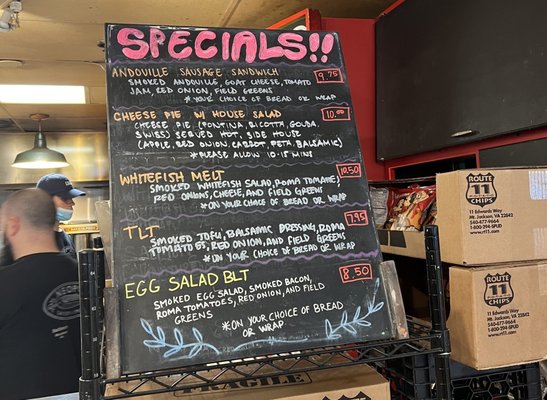 SPECIALS!!
ANDOUILLE SAUSAGE SANDWICH 9.75
SMOKED ANDOUILLE, GOAT CHEESE, TOMATO
JAM, RED ONION, FIELD GREENS
*YOUR CHOICE OF BREAD OR WRAP
CHEESE PIE W/ HOUSE SALAD 10.00
CHEESE PIE (FONTINA, RICOTTA, GOUDA,
SWISS) SERVED HOT, SIDE HOUSE
(APPLE, RED ONION, CARROT, FETA, BALSAMIC)
*PLEASE ALLOW 10-15 MINS
WHITEFISH MELT 10.50
SMOKED WHITEFISH SALAD, ROMA TOMATOE,
RED ONIONS, CHEESE, AND FIELD GREENS
*ON YOUR CHOICE OF BREAD OR WRAP
TLT 7.95
SMOKED TOFU, BALSAMIC DRESSING, ROMA
TOMATOES, RED ONION, AND FIELD GREENS
*ON YOUR CHOICE OF BREAD OR WRAP
EGG SALAD BLT 8.50
SMOKED EGG SALAD, SMOKED BACON,
ROMA TOMATOES, RED ONION, AND FIELD
GREENS
*ON YOUR CHOICE OF BREAD
OR WRAP
ROUTE
11
CHIPS
11 Edwards Way
Mt. Jackson, VA 22842
540-477-9664
rt11.com
ROUTE
11
CHIPS
11 Edwards Way
Mt. Jackson, VA
540-999-SPUD
rt11.com
FRAGILE